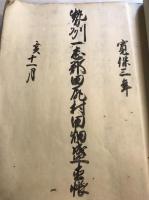 寛保三年
勢州一志郡田尻村田畑畝高帳
亥十一月